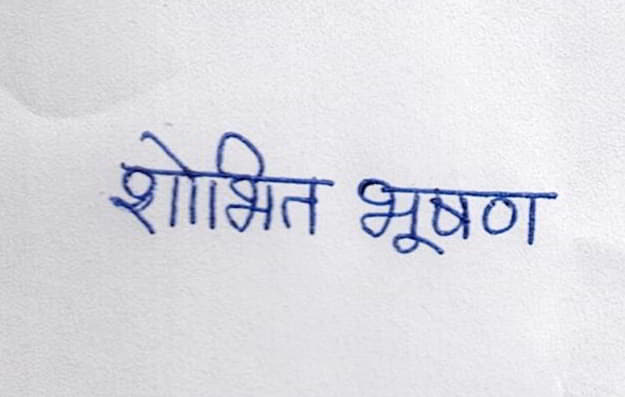 शोभित भूषण